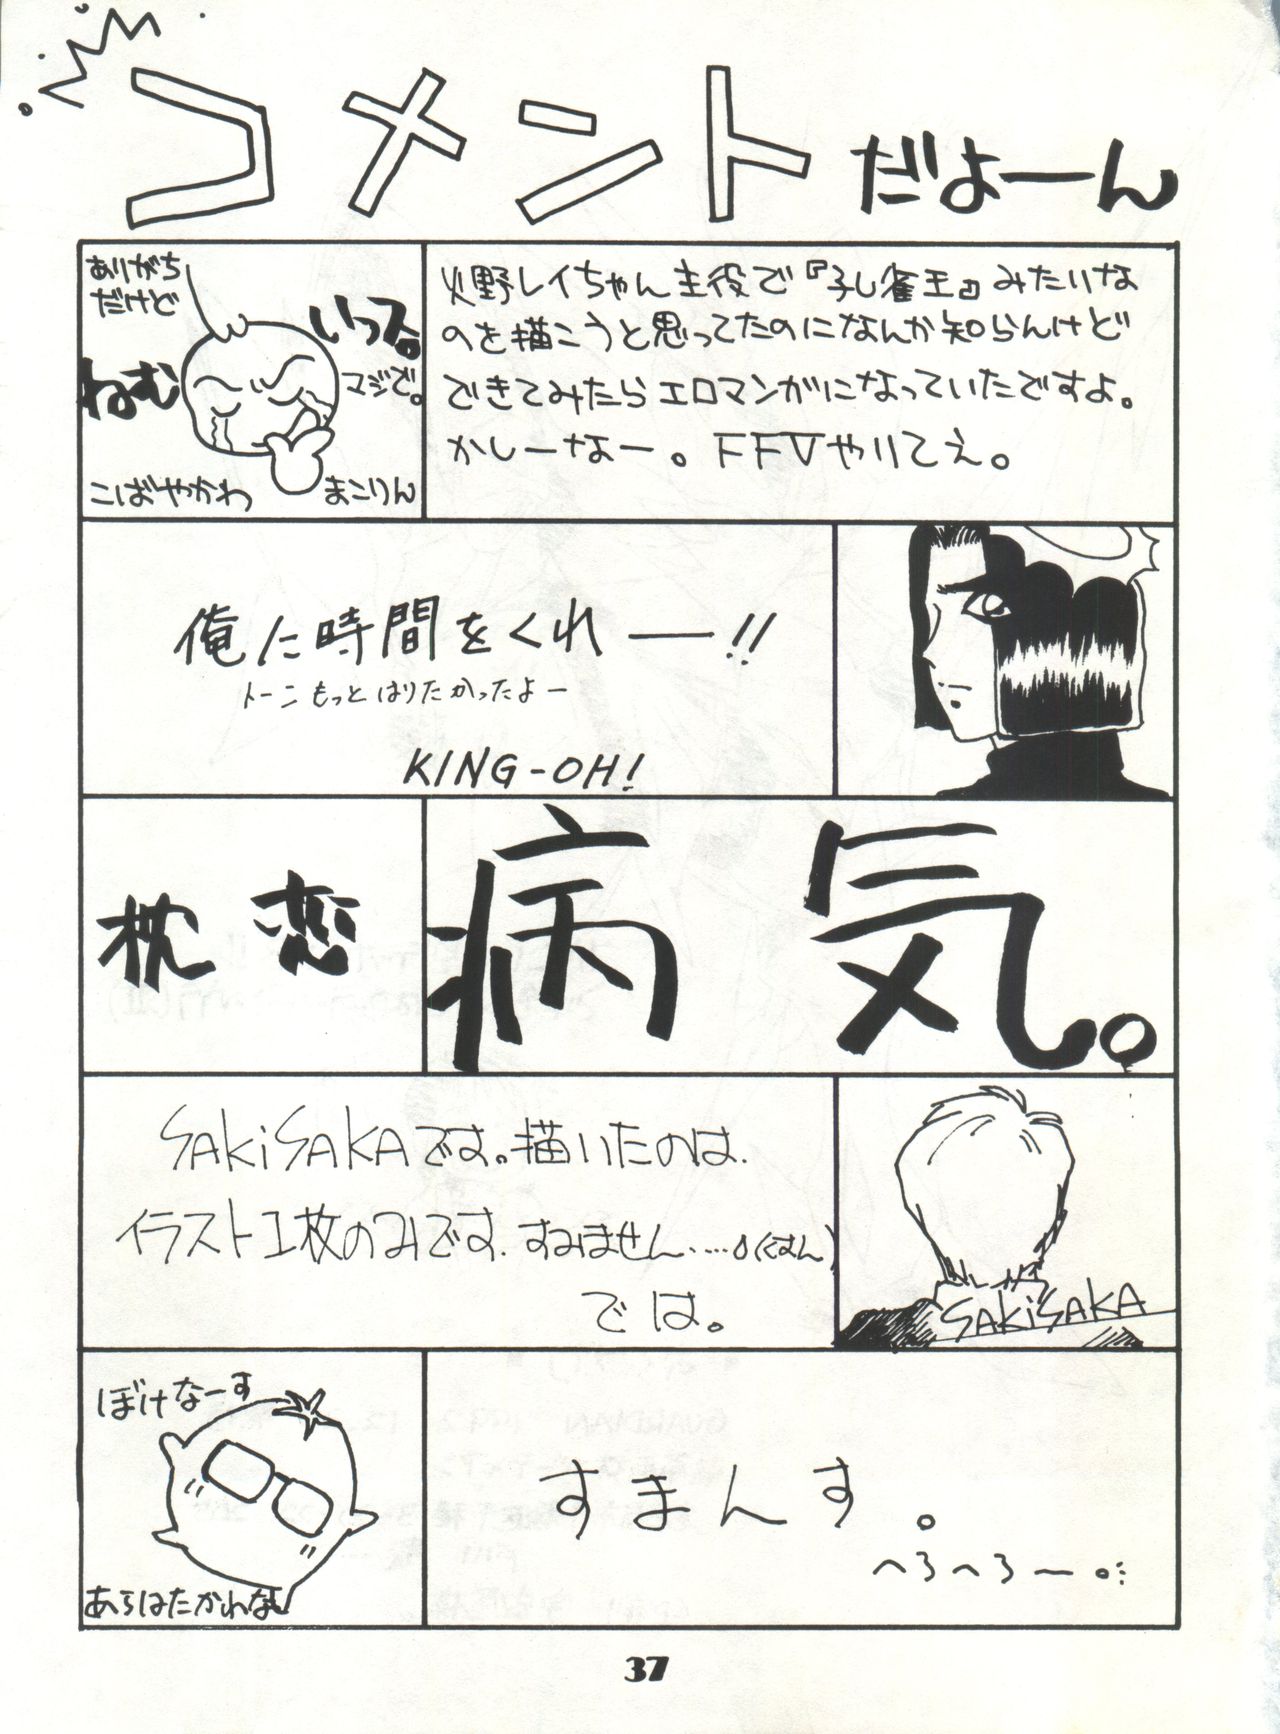 コメントだよーん
ありがち
だけど
ねむ
いっス。
マジで。
こばやかわ まこりん
火野レイちゃん主役で『孔雀王』みたいな
のを描こうと思ってたのになんか知らんけど
できてみたらエロマンガになっていたですよ。
かしーなー。FFⅤやりてえ。
俺に時間をくれ――!!
トーンもっとはりたかったよー
KING-OH!
枕恋
病気。
SAKiSAKAです。描いたのは、
イラスト1枚のみです。すみません……(くすん)
では。
SAKiSAKA
ぼけなーす
あらはたかれなし
すまんす。
へろへろー
37